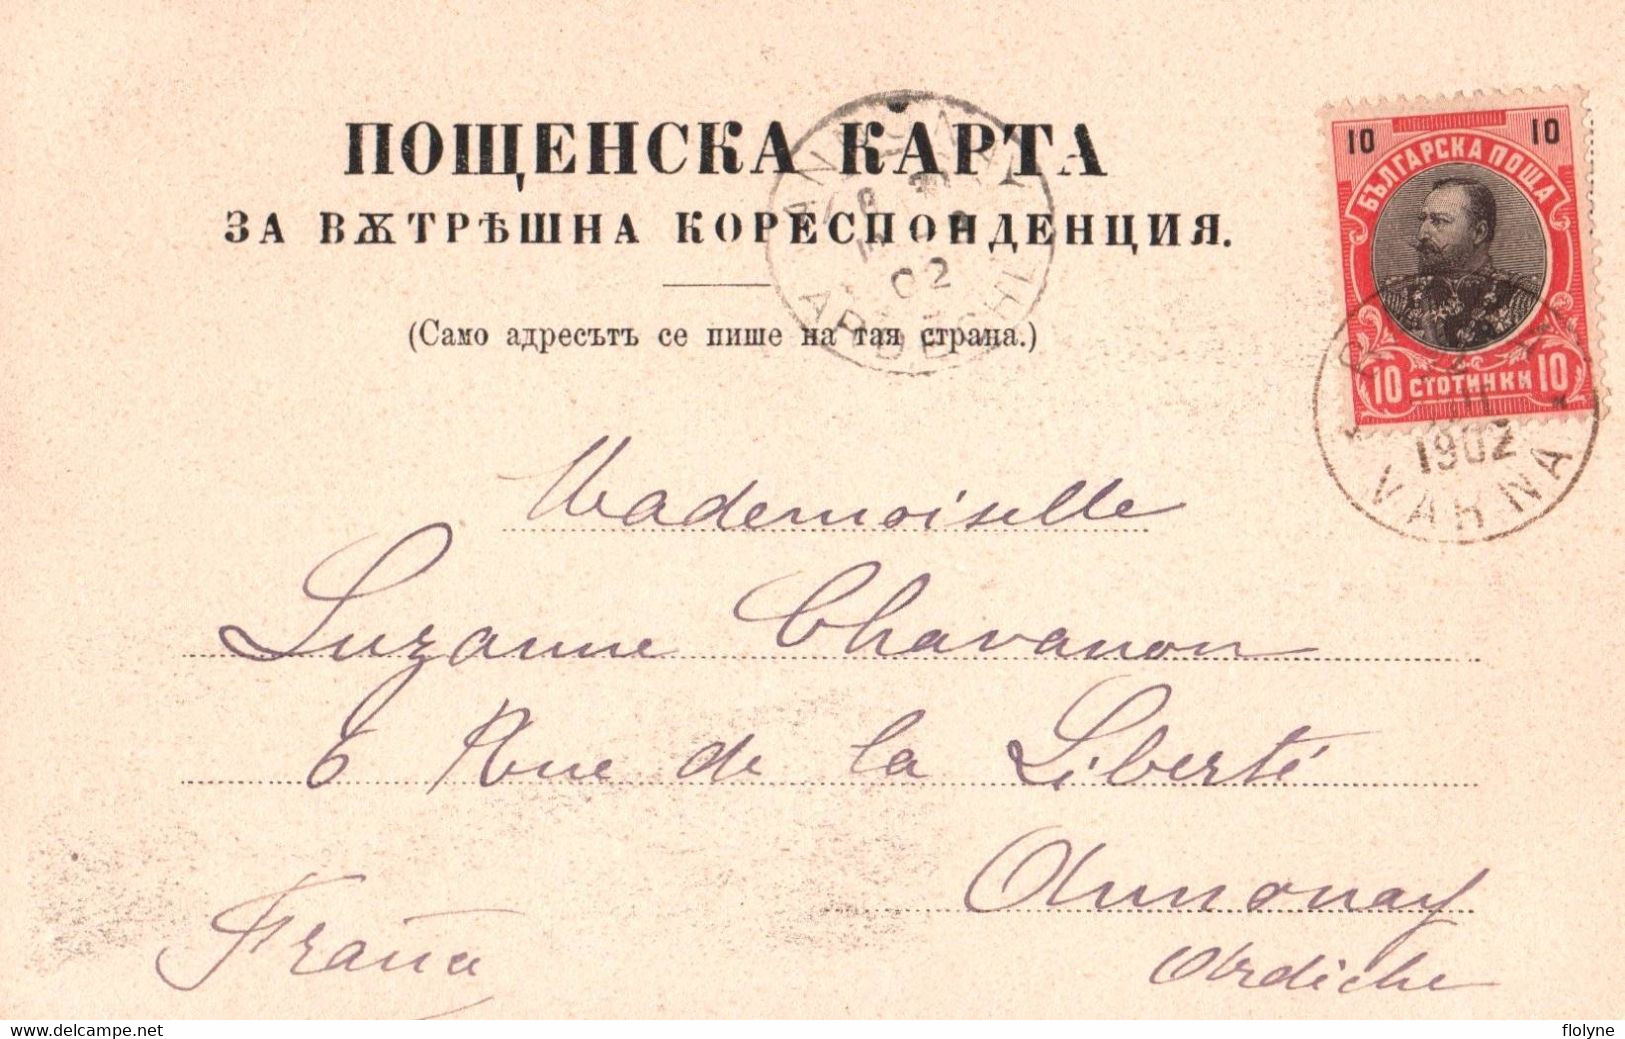 ПОЩЕНСКА КАРТА
ЗА ВѪТРѢШНА КОРЕСПОНДЕНЦИЯ.
(Само адресътъ се пише на тая страна.)
10 10
БЪЛГАРСКА ПОЩА
10 СТОТИНКИ 10
02
1902
VARNA
Mademoiselle
Suzanne Chavanon
6 Rue de la Liberté
Annonay
Ardèche
France
www.delcampe.net
flolyne